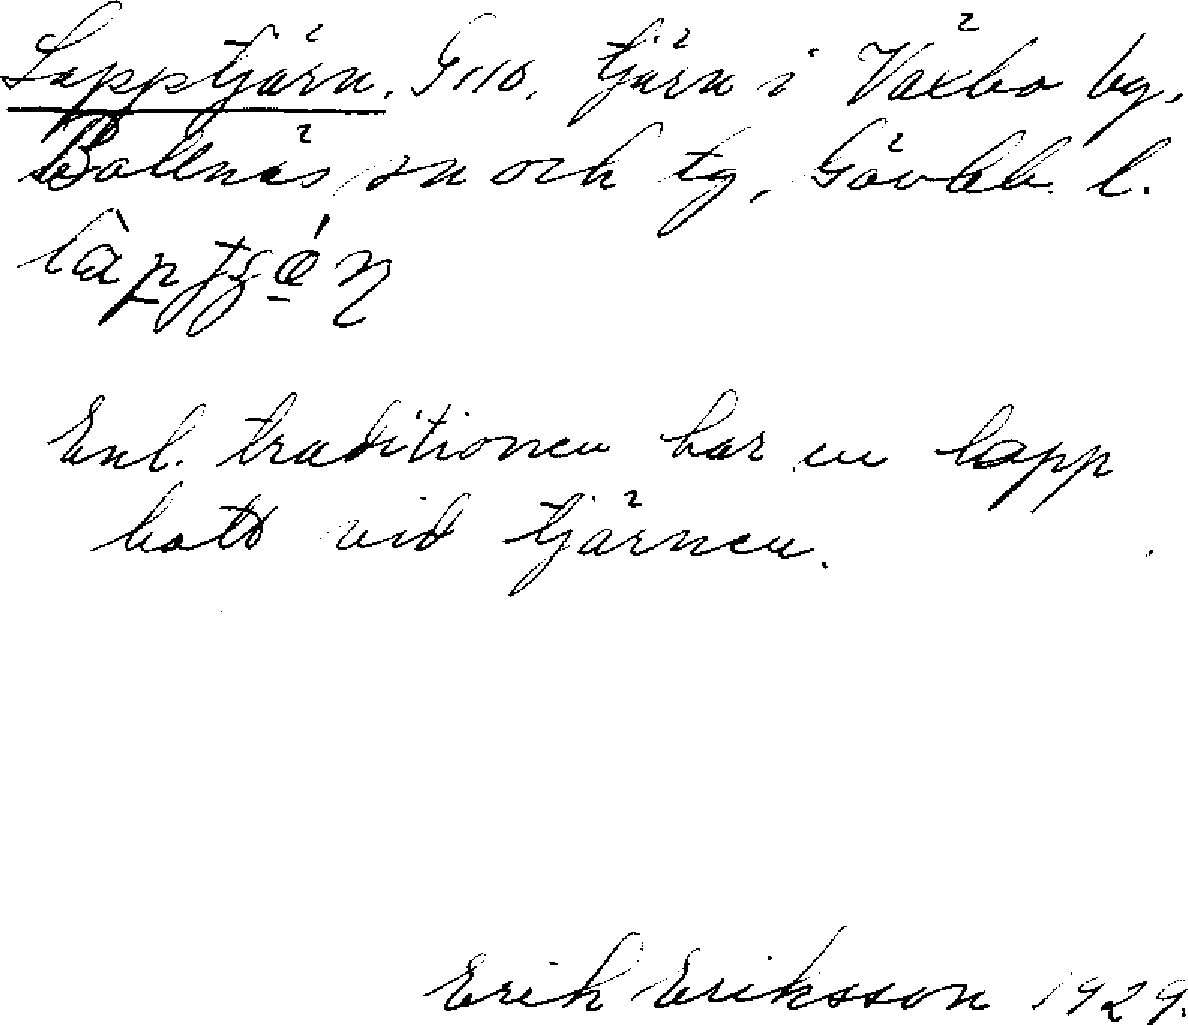 Lapptjärn. G 110. tjärn i Växbo by,
Bollnäs sn och tg, Gävleb. l.
Enl. traditionen har en lapp
bott vid tjärnen.
Erik Eriksson 1929.